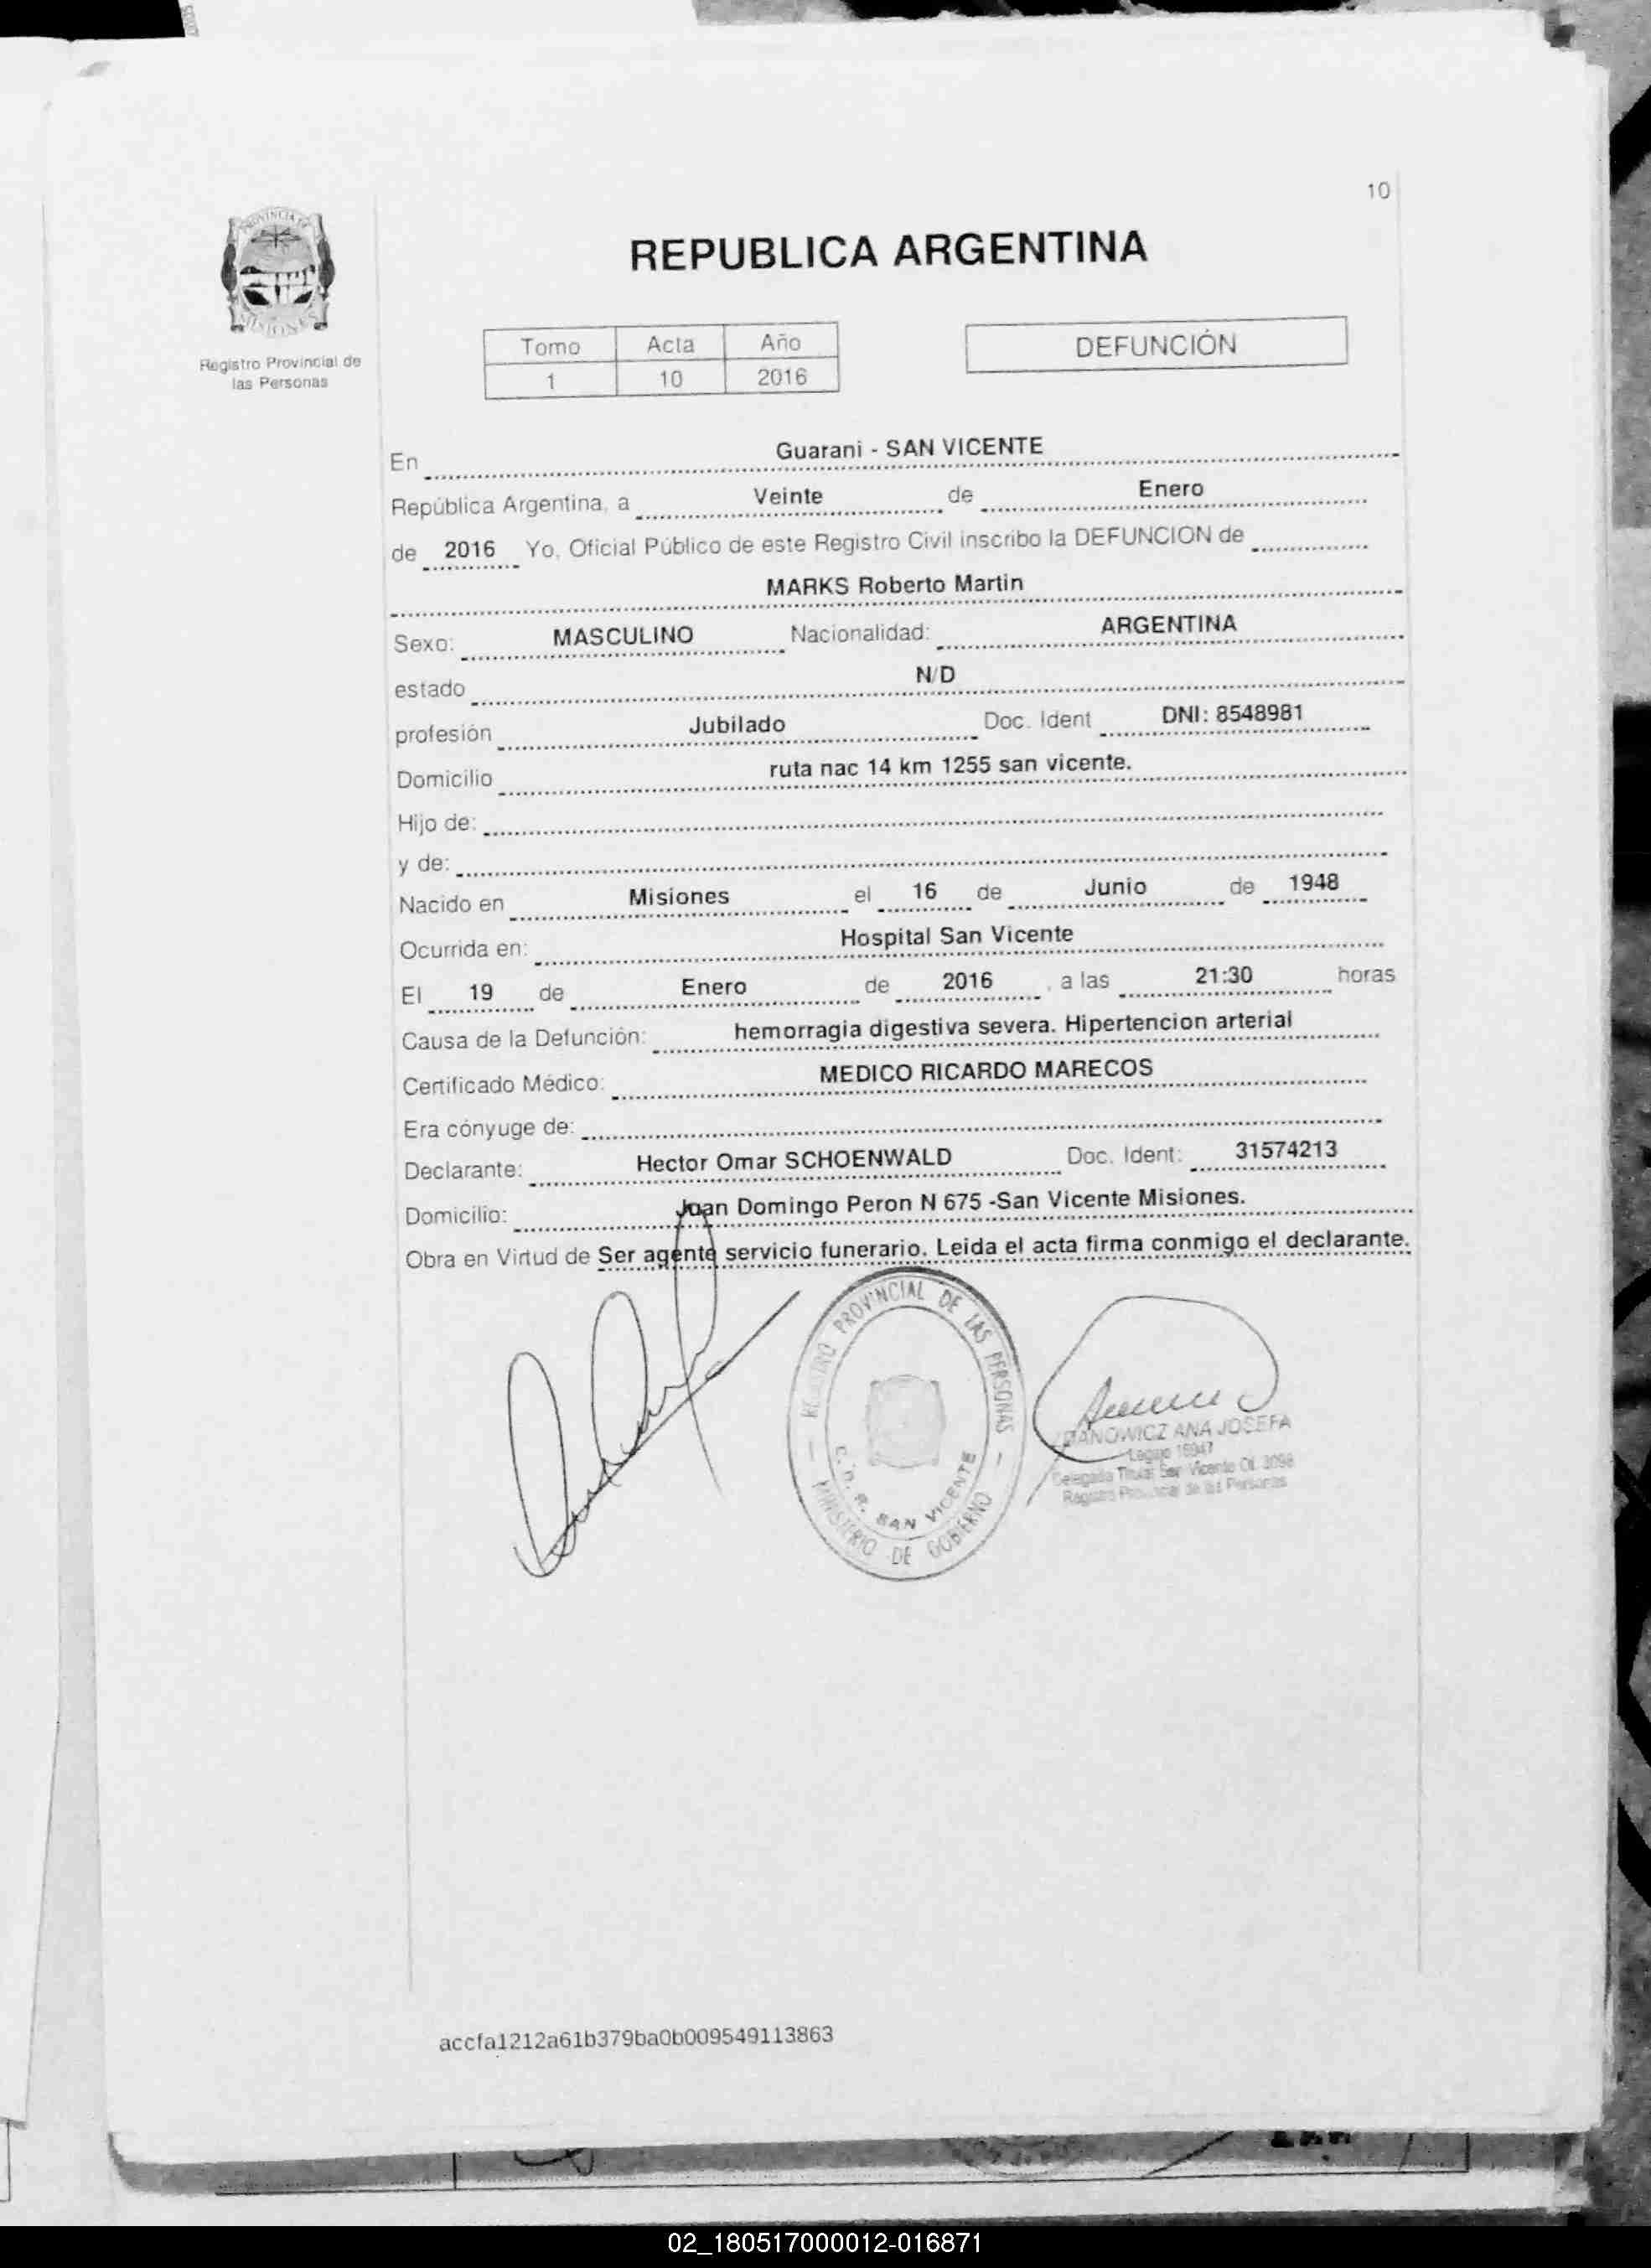 10
PROVINCIA DE
MISIONES
Registro Provincial de
las Personas
REPUBLICA ARGENTINA
Tomo Acta Año
1 10 2016
DEFUNCIÓN
En Guarani - SAN VICENTE
República Argentina, a Veinte de Enero
de 2016 Yo, Oficial Público de este Registro Civil inscribo la DEFUNCION de
MARKS Roberto Martin
Sexo: MASCULINO Nacionalidad: ARGENTINA
estado N/D
profesión Jubilado Doc. Ident DNI: 8548981
Domicilio ruta nac 14 km 1255 san vicente.
Hijo de:
y de:
Nacido en Misiones el 16 de Junio de 1948
Ocurrida en: Hospital San Vicente
El 19 de Enero de 2016 , a las 21:30 horas
Causa de la Defunción: hemorragia digestiva severa. Hipertencion arterial
Certificado Médico: MEDICO RICARDO MARECOS
Era cónyuge de:
Declarante: Hector Omar SCHOENWALD Doc. Ident: 31574213
Domicilio: Juan Domingo Peron N 675 -San Vicente Misiones.
Obra en Virtud de Ser agente servicio funerario. Leida el acta firma conmigo el declarante.
REGISTRO PROVINCIAL DE LAS PERSONAS
C. D. R. SAN VICENTE
MINISTERIO DE GOBIERNO
ANA JOSEFA
Titular San Vicente Of. 3098
Registro Provincial de las Personas
accfa1212a61b379ba0b009549113863
02_180517000012-016871